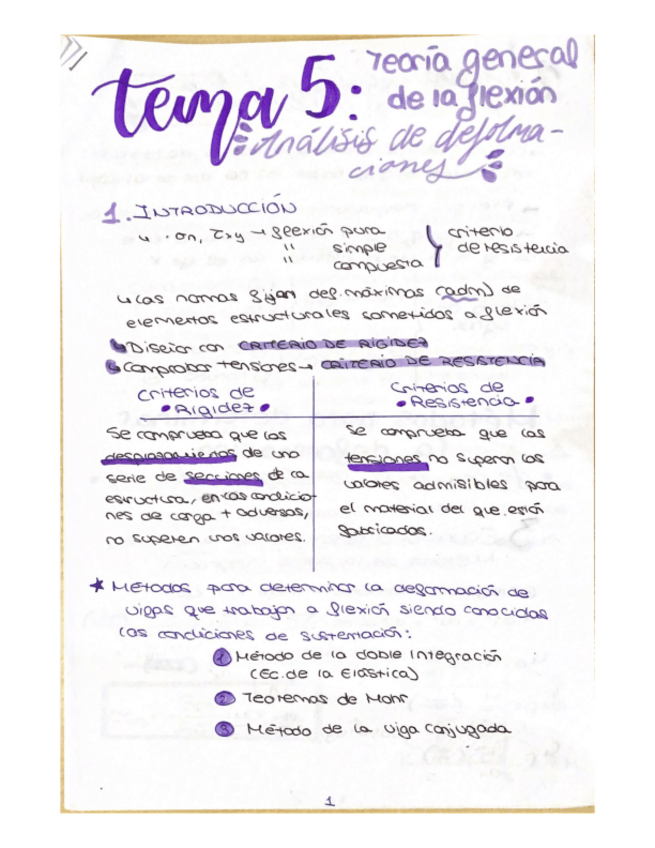 tema 5: Teoría general
de la flexión
Análisis de deforma-
ciones
1. INTRODUCCIÓN
↳ · σn, τxy → flexión pura
" simple
" compuesta
criterio
de resistencia
↳ las normas fijan def. máximas (adm) de
elementos estructurales sometidos a flexión
↳ Diseñar con CRITERIO DE RIGIDEZ
↳ Comprobar tensiones → CRITERIO DE RESISTENCIA
Criterios de
• Rigidez •
Se comprueba que los
desplazamientos de una
serie de secciones de la
estructura, en las condicio-
nes de carga + adversas,
no superen unos valores.
Criterios de
• Resistencia •
Se comprueba que las
tensiones no superan los
valores admisibles para
el material del que están
fabricados.
* Métodos para determinar la deformación de
vigas que trabajan a flexión siendo conocidas
las condiciones de sustentación:
1 Método de la doble Integración
(Ec. de la Elástica)
2 Teoremas de Mohr
3 Método de la viga conjugada
1